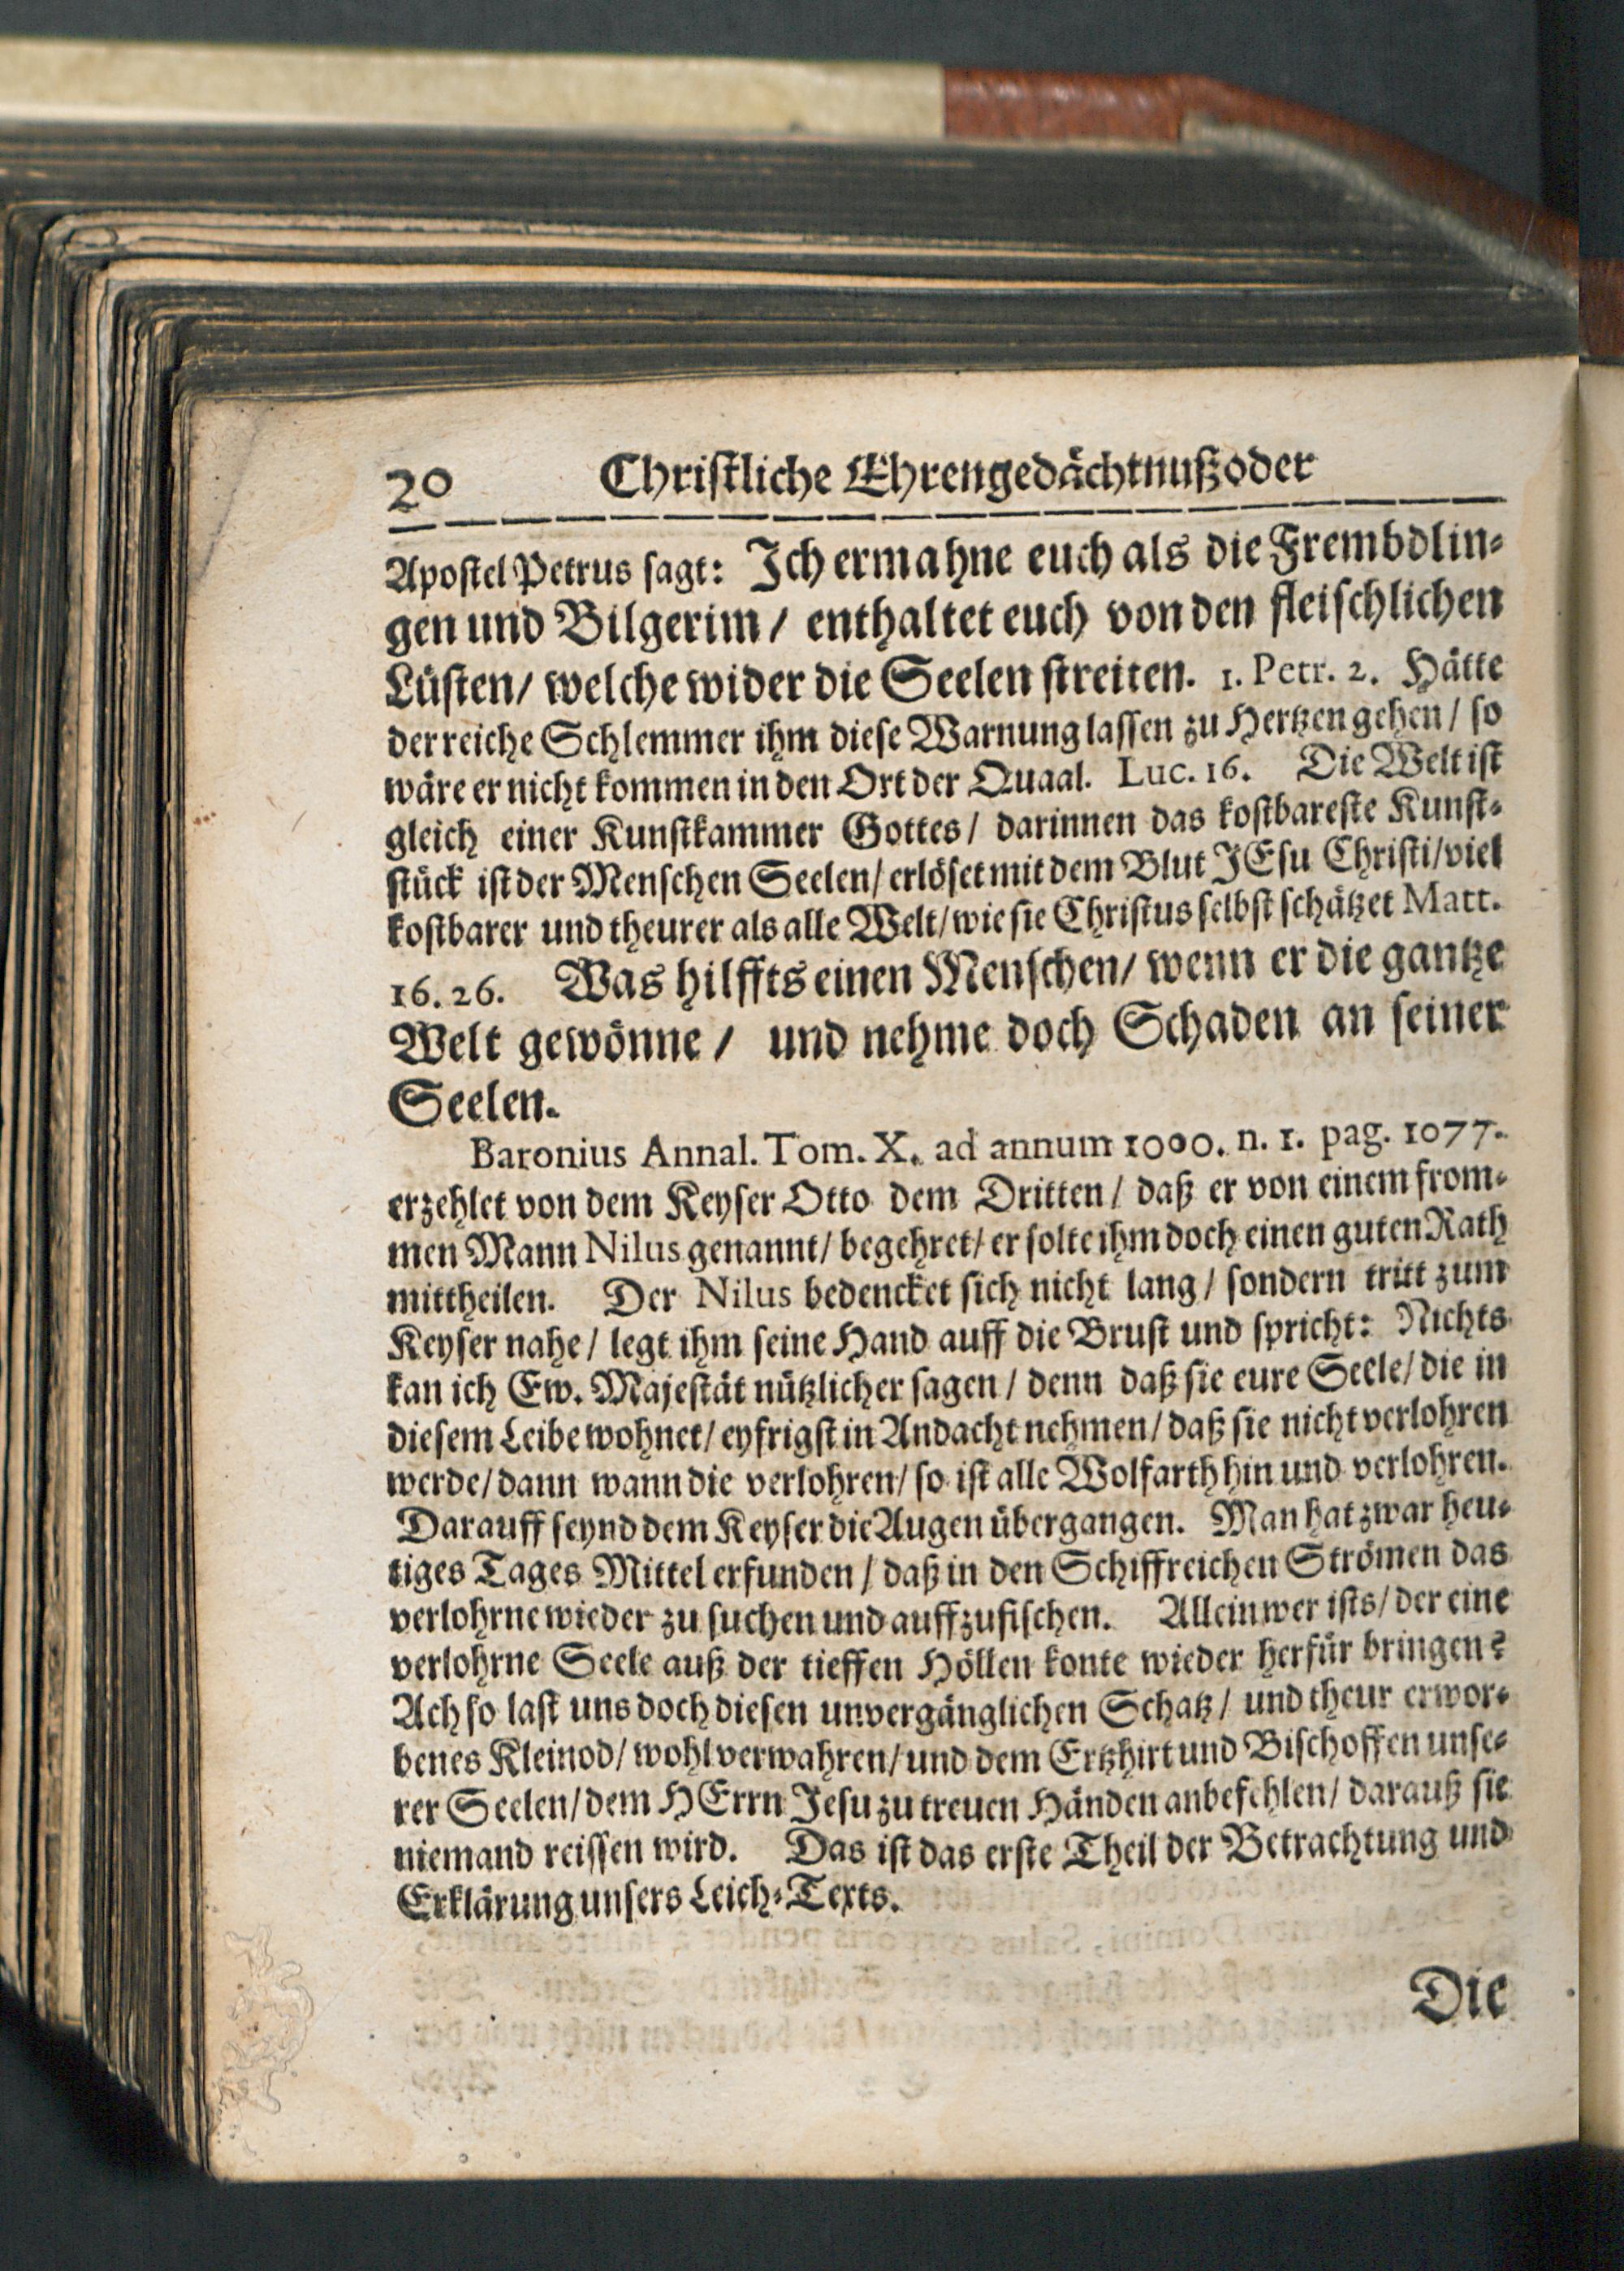 20 Christliche Ehrengedächtnuß oder
Apostel Petrus sagt: Ich ermahne euch als die Frembdlin-
gen und Bilgerim / enthaltet euch von den fleischlichen
Lüsten / welche wider die Seelen streiten. 1. Petr. 2. Hätte
der reiche Schlemmer ihm diese Warnung lassen zu Hertzen gehen / so
wäre er nicht kommen in den Ort der Quaal. Luc. 16. Die Welt ist
gleich einer Kunstkammer Gottes / darinnen das kostbareste Kunst-
stück ist der Menschen Seelen / erlöset mit dem Blut JEsu Christi / viel
kostbarer und theurer als alle Welt / wie sie Christus selbst schätzet Matt.
16. 26. Was hilffts einen Menschen / wenn er die gantze
Welt gewönne / und nehme doch Schaden an seiner
Seelen.
Baronius Annal. Tom. X. ad annum 1000. n. 1. pag. 1077.
erzehlet von dem Keyser Otto dem Dritten / daß er von einem from-
men Mann Nilus genannt / begehret / er solte ihm doch einen guten Rath
mittheilen. Der Nilus bedencket sich nicht lang / sondern tritt zum
Keyser nahe / legt ihm seine Hand auff die Brust und spricht: Nichts
kan ich Ew. Majestät nützlicher sagen / denn daß sie eure Seele / die in
diesem Leibe wohnet / eyfrigst in Andacht nehmen / daß sie nicht verlohren
werde / dann wann die verlohren / so ist alle Wolfarth hin und verlohren.
Darauff seynd dem Keyser die Augen übergangen. Man hat zwar heu-
tiges Tages Mittel erfunden / daß in den Schiffreichen Strömen das
verlohrne wieder zu suchen und auffzufischen. Allein wer ists / der eine
verlohrne Seele auß der tieffen Höllen konte wieder herfür bringen?
Ach so last uns doch diesen unvergänglichen Schatz / und theur erwor-
benes Kleinod / wohl verwahren / und dem Ertzhirt und Bischoffen unse-
rer Seelen / dem HErrn Jesu zu treuen Händen anbefehlen / darauß sie
niemand reissen wird. Das ist das erste Theil der Betrachtung und
Erklärung unsers Leich-Texts.
Die